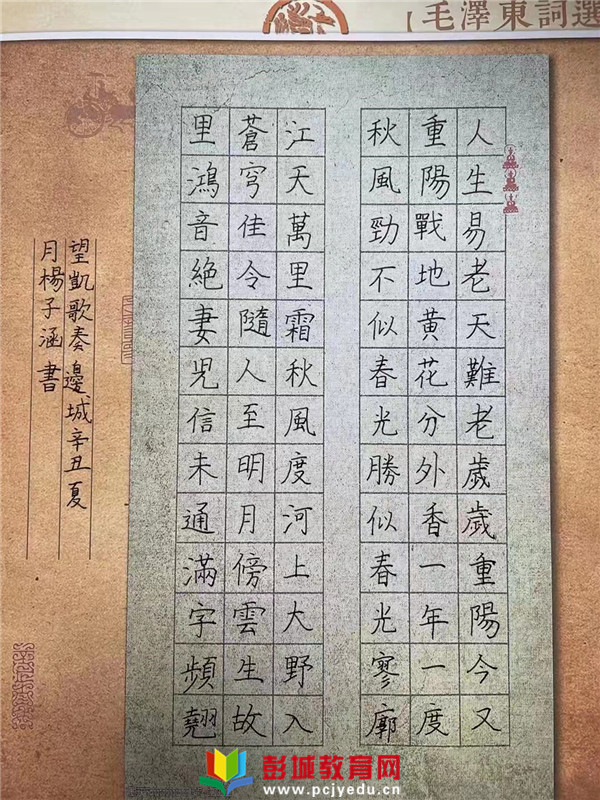 【毛澤東詞選
人生易老天難老歲歲重陽今又
重陽戰地黃花分外香一年一度
秋風勁不似春光勝似春光寥廓
江天萬里霜秋風度河上大野入
蒼穹佳令隨人至明月傍雲生故
里鴻音絶妻兒信未通滿字頻翹
望凱歌奏邊城辛丑夏
月楊子涵書
彭城教育网
www.pcjyedu.cn